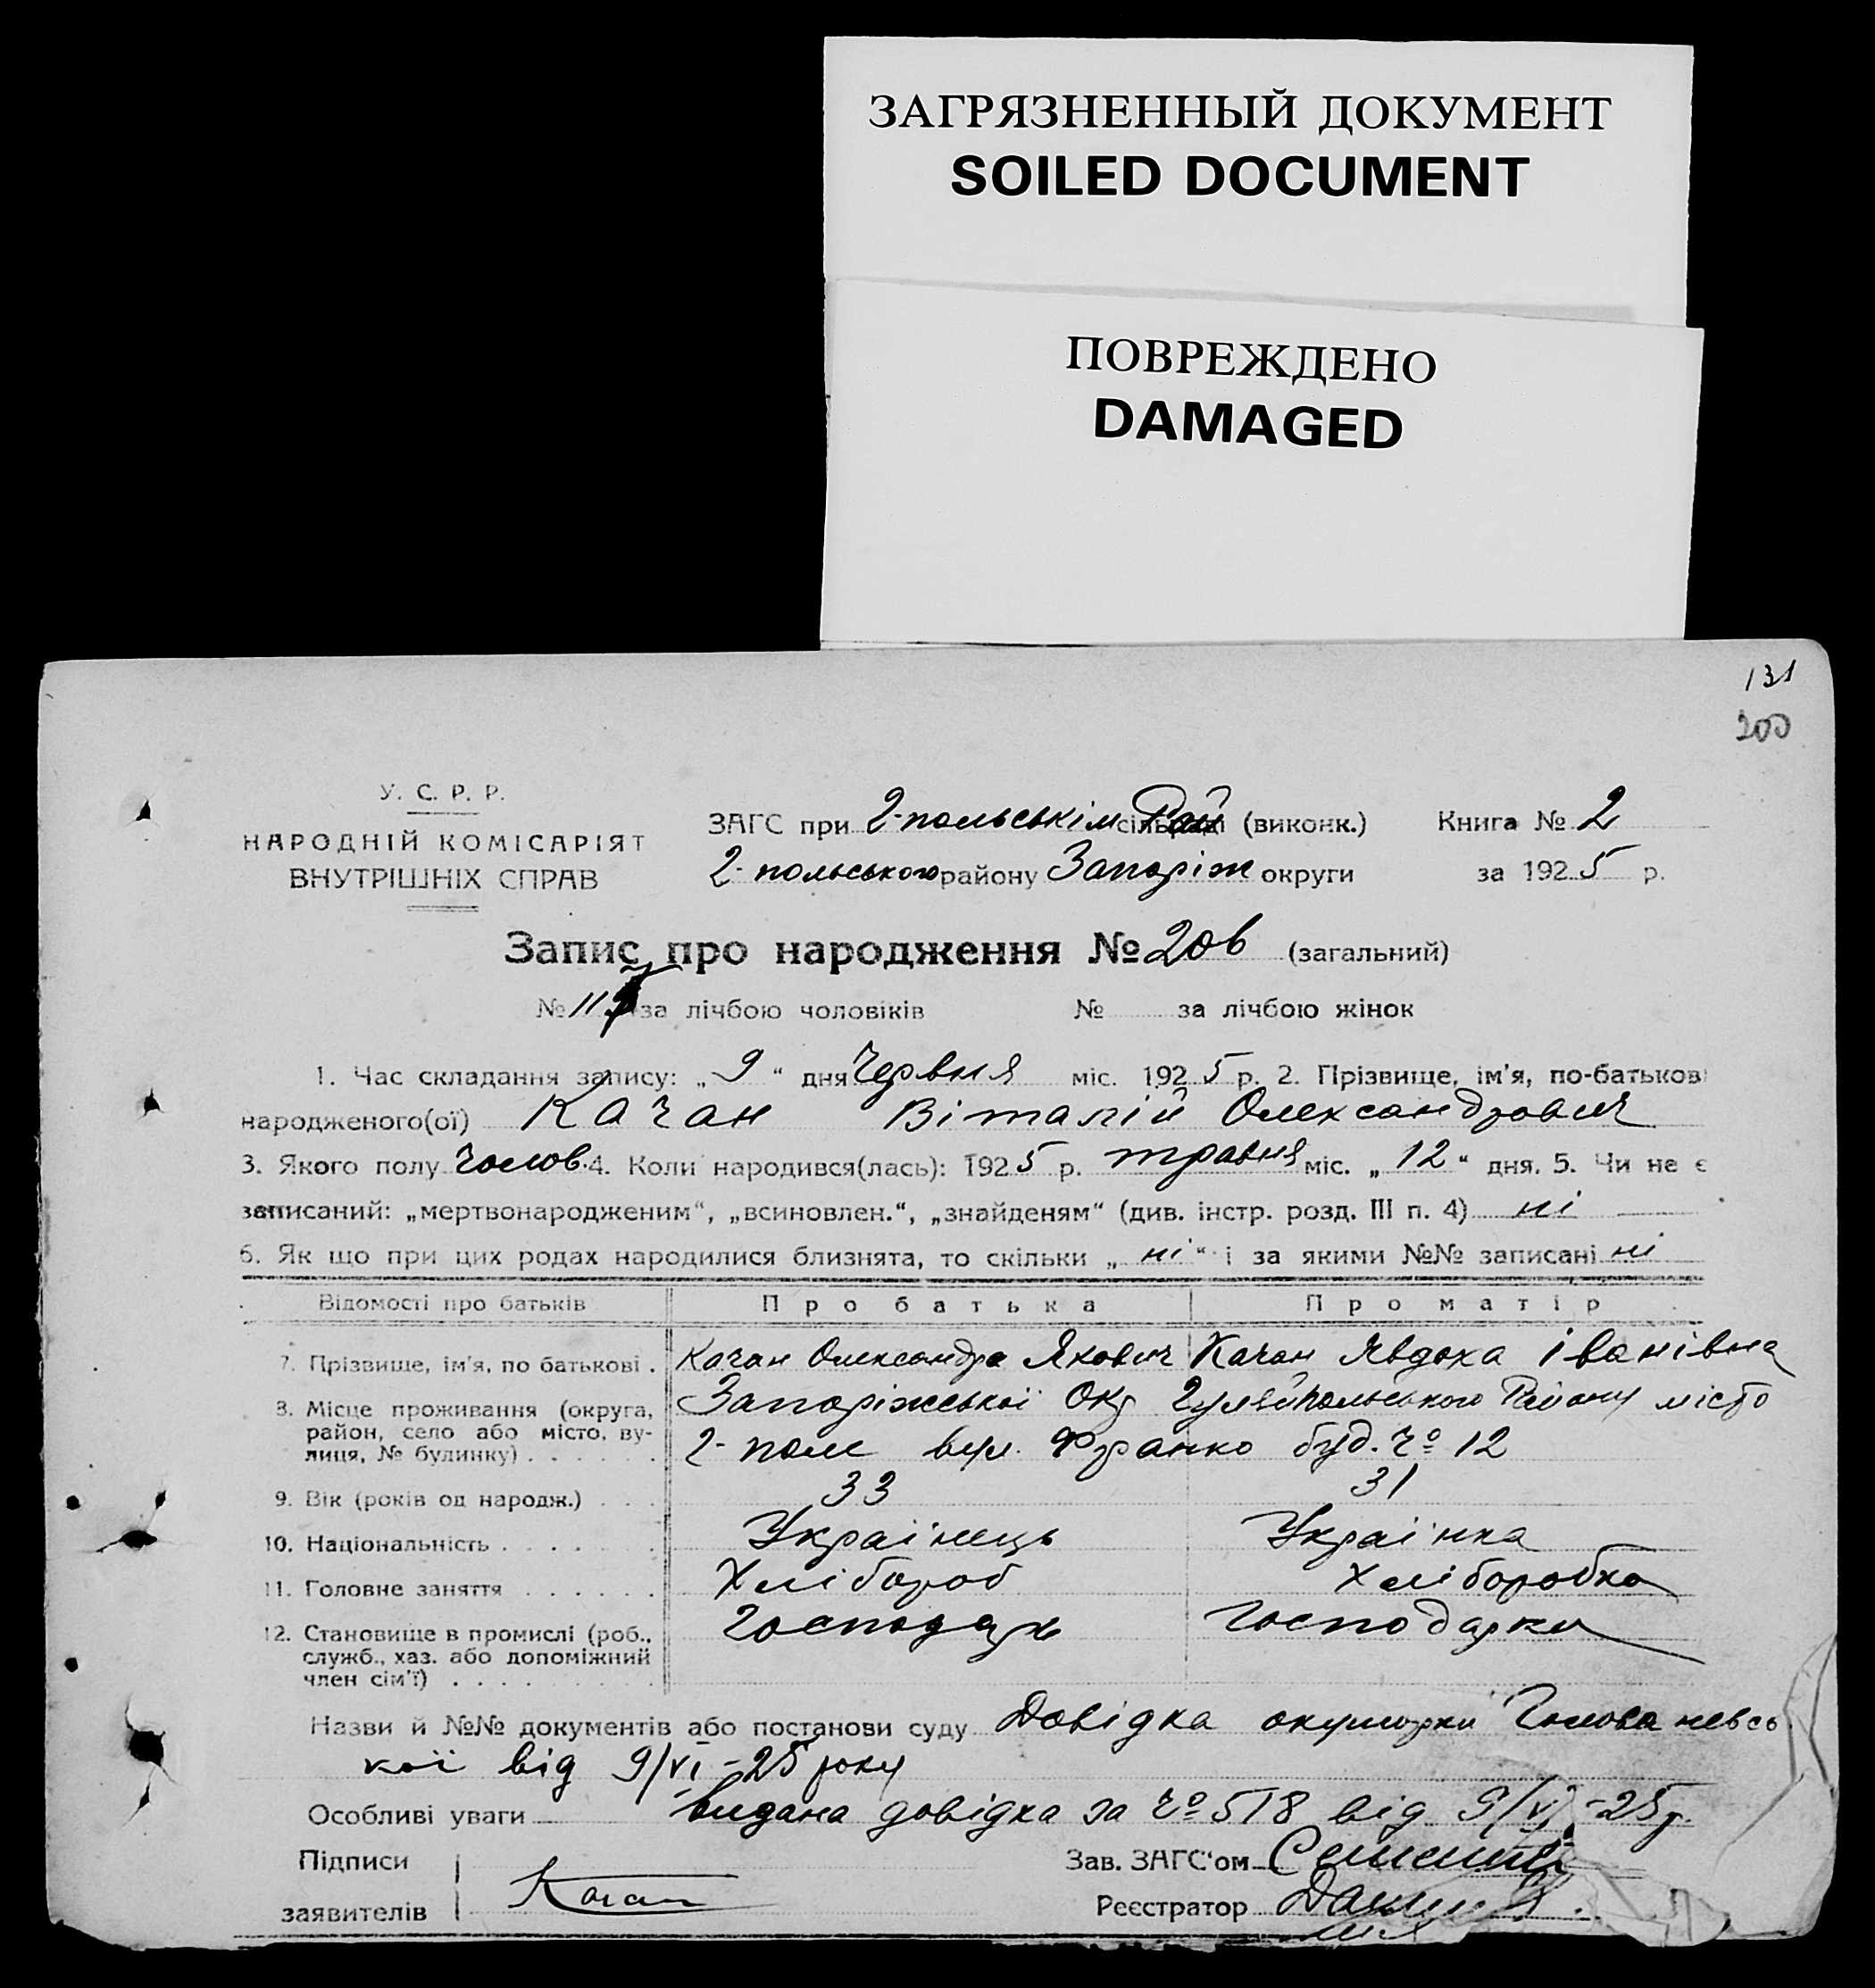 ЗАГРЯЗНЕННЫЙ ДОКУМЕНТ
SOILED DOCUMENT
ПОВРЕЖДЕНО
DAMAGED
131
200
У. С. Р. Р.
НАРОДНІЙ КОМІСАРІЯТ
ВНУТРІШНІХ СПРАВ
ЗАГС при Г-польськім Рай (виконк.) Книга № 2
Г-польського району Запоріж округи за 1925 р.
Запис про народження № 206 (загальний)
№ 117 за лічбою чоловіків № за лічбою жінок
1. Час складання запису: „9“ дня Червня міс. 1925 р. 2. Прізвище, ім'я, по-батькові
народженого(ої) Качан Віталій Олександрович
3. Якого полу Чолов. 4. Коли народився(лась): 1925 р. травня міс. „12“ дня. 5. Чи не є
записаний: „мертвонародженим“, „всиновлен.“, „знайденям“ (див. інстр. розд. III п. 4) ні
6. Як що при цих родах народилися близнята, то скільки „ні“ і за якими №№ записані ні
Відомості про батьків Про батька Про матір
7. Прізвище, ім'я, по батькові . Качан Олександра Якович Качан Явдоха Іванівна
8. Місце проживання (округа, район, село або місто, вулиця, № будинку) . . . . . . Запоріжської Окр Гуляйпольського Району місто
Г-поле вул. Франко буд. № 12
9. Вік (років од народж.) . . . 33 31
10. Національність . . . . . . . Українець Українка
11. Головне заняття . . . . . . Хлібороб Хліборобка
12. Становище в промислі (роб., служб., хаз. або допоміжний член сім'ї) . . . . . . . . . Господарь Господарка
Назви й №№ документів або постанови суду Довідка окушорки Голованевсь
кої від 9/VI-25 року
Особливі уваги видана довідка за № 518 від 9/VI-25 р.
Підписи Зав. ЗАГС'ом
заявителів Качан Реєстратор